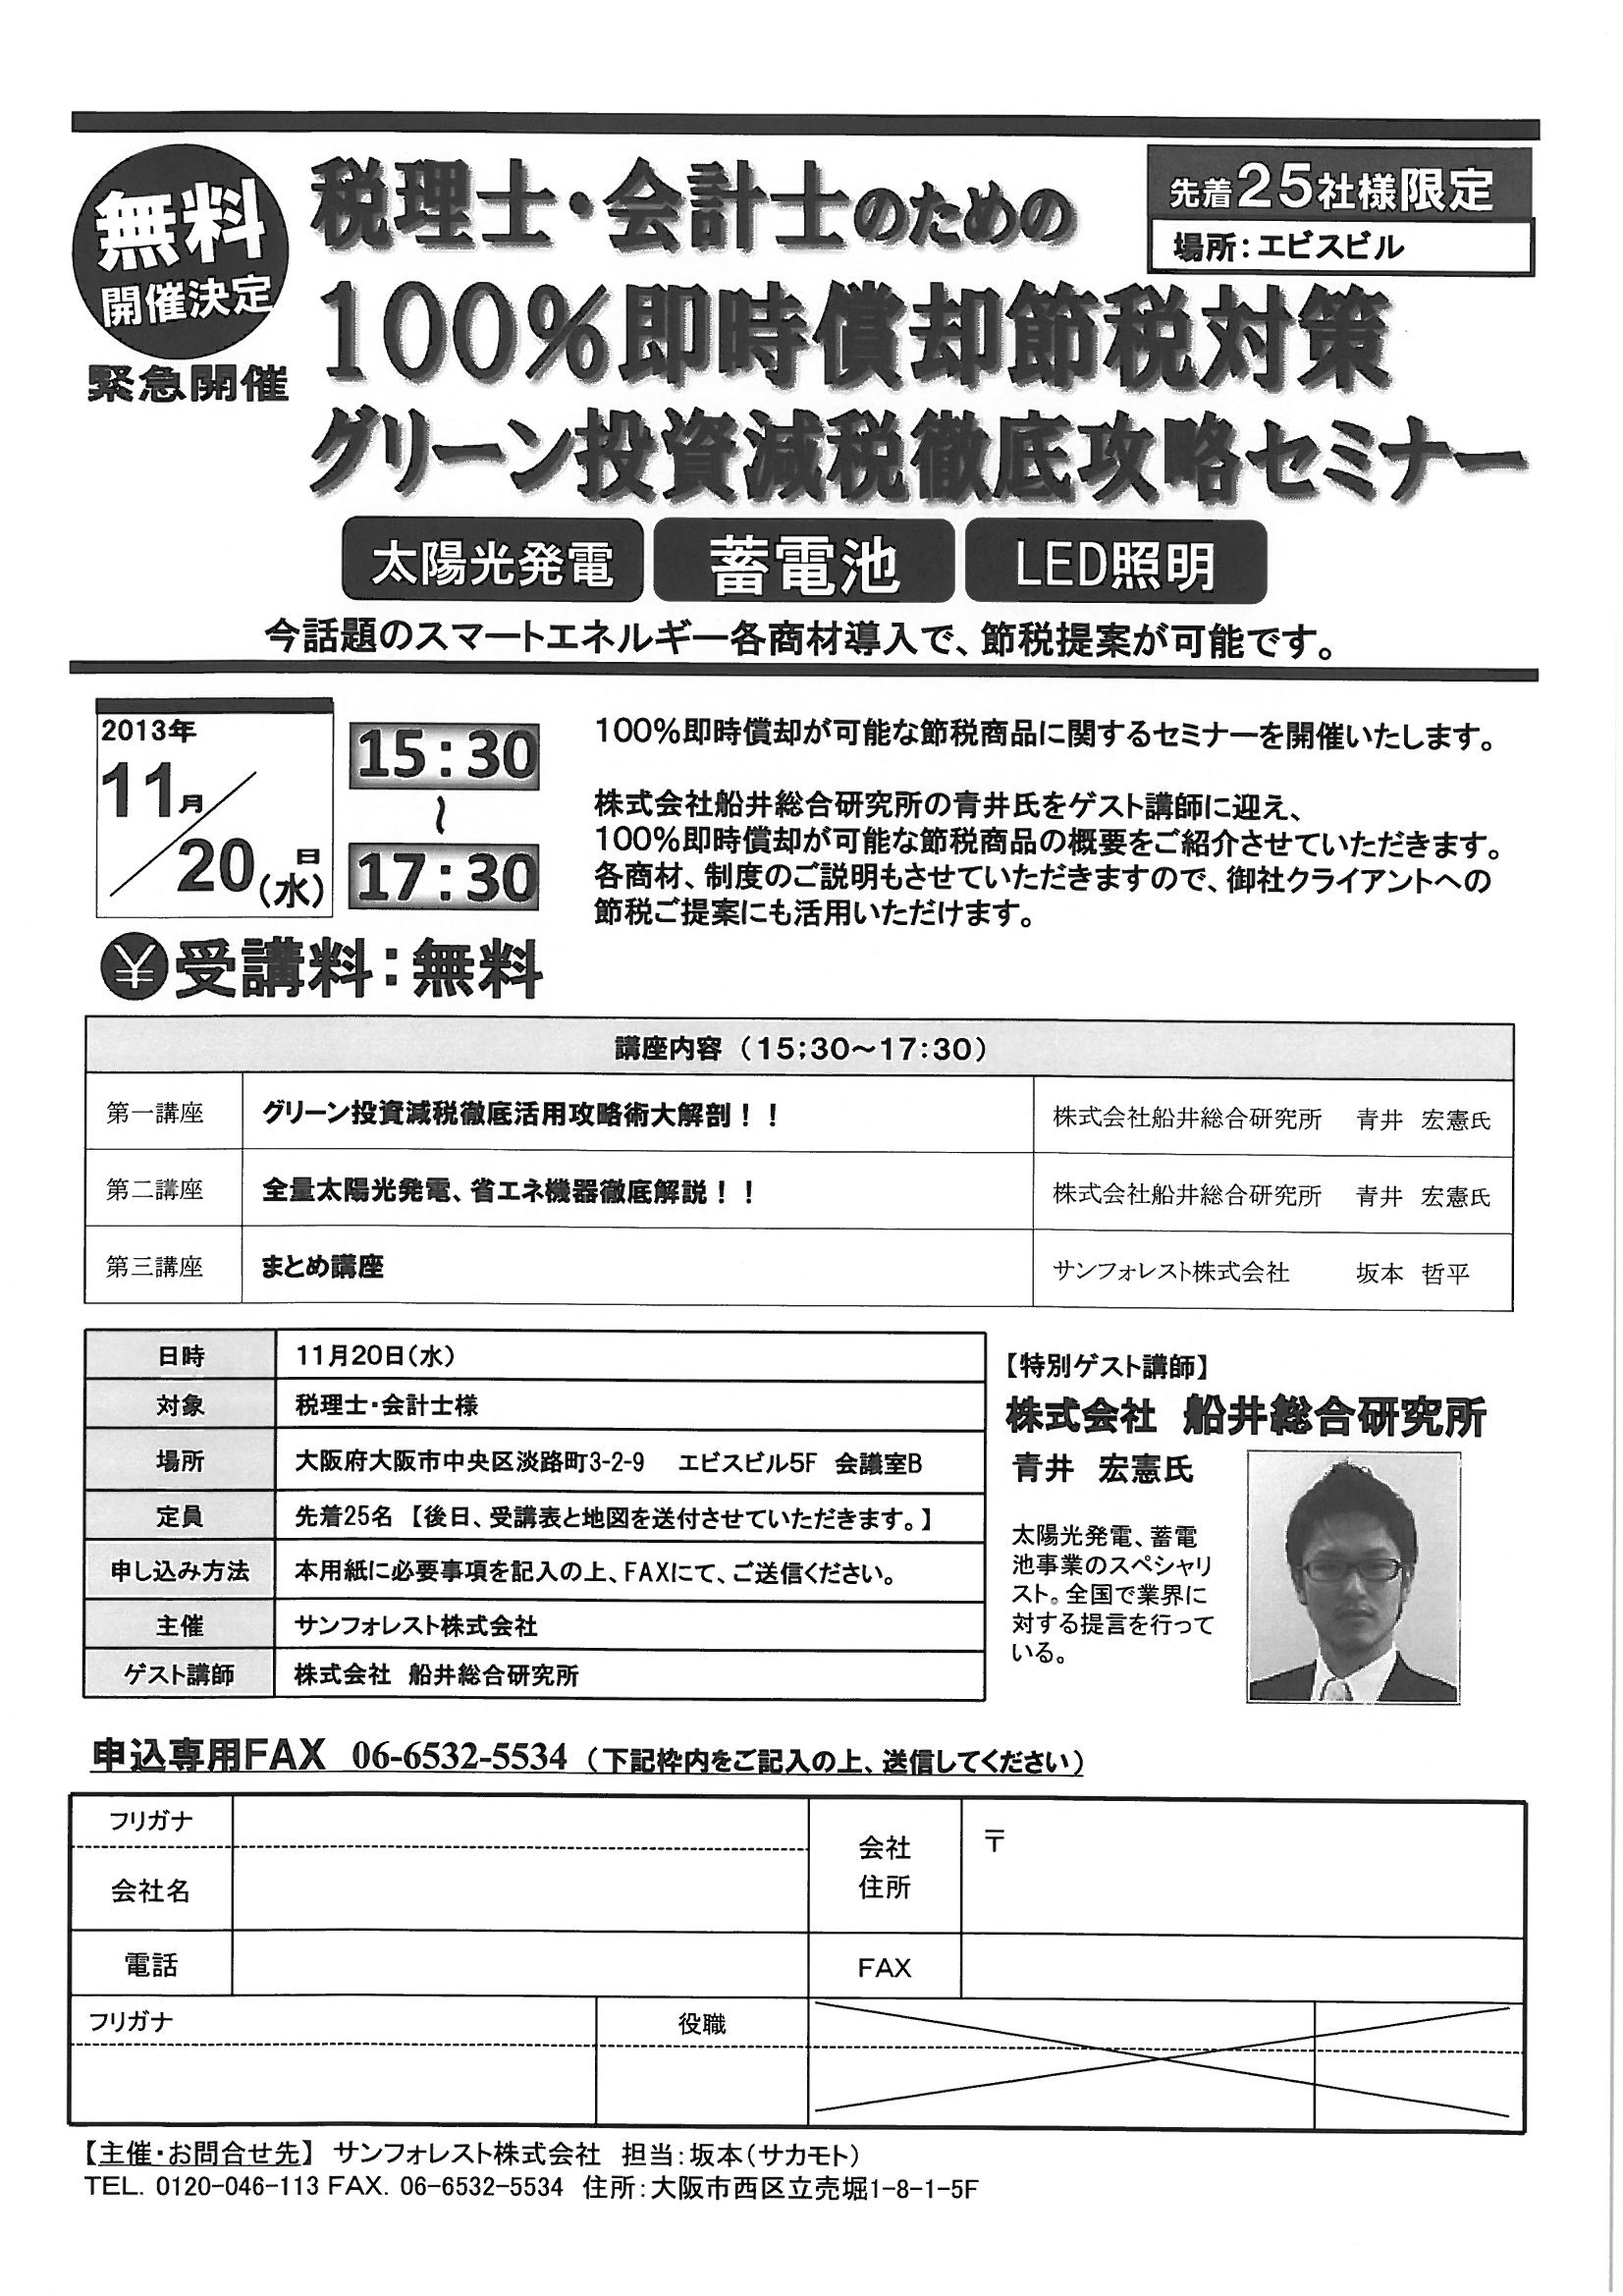 無料
開催決定
緊急開催
税理士・会計士のための
先着25社様限定
場所：エビスビル
100%即時償却節税対策
グリーン投資減税徹底攻略セミナー
太陽光発電 蓄電池 LED照明
今話題のスマートエネルギー各商材導入で、節税提案が可能です。
2013年
11月
20日(水)
15：30
～
17：30
100%即時償却が可能な節税商品に関するセミナーを開催いたします。
株式会社船井総合研究所の青井氏をゲスト講師に迎え、
100%即時償却が可能な節税商品の概要をご紹介させていただきます。
各商材、制度のご説明もさせていただきますので、御社クライアントへの
節税ご提案にも活用いただけます。
¥受講料：無料
講座内容（15;30～17:30）
第一講座 グリーン投資減税徹底活用攻略術大解剖！！ 株式会社船井総合研究所 青井 宏憲氏
第二講座 全量太陽光発電、省エネ機器徹底解説！！ 株式会社船井総合研究所 青井 宏憲氏
第三講座 まとめ講座 サンフォレスト株式会社 坂本 哲平
日時 11月20日(水)
対象 税理士・会計士様
場所 大阪府大阪市中央区淡路町3-2-9 エビスビル5F 会議室B
定員 先着25名【後日、受講表と地図を送付させていただきます。】
申し込み方法 本用紙に必要事項を記入の上、FAXにて、ご送信ください。
主催 サンフォレスト株式会社
ゲスト講師 株式会社 船井総合研究所
【特別ゲスト講師】
株式会社 船井総合研究所
青井 宏憲氏
太陽光発電、蓄電
池事業のスペシャリ
スト。全国で業界に
対する提言を行って
いる。
申込専用FAX 06-6532-5534（下記枠内をご記入の上、送信してください）
フリガナ
会社名
会社
住所
〒
電話
FAX
フリガナ
役職
【主催・お問合せ先】 サンフォレスト株式会社 担当：坂本（サカモト）
TEL. 0120-046-113 FAX. 06-6532-5534 住所：大阪市西区立売堀1-8-1-5F